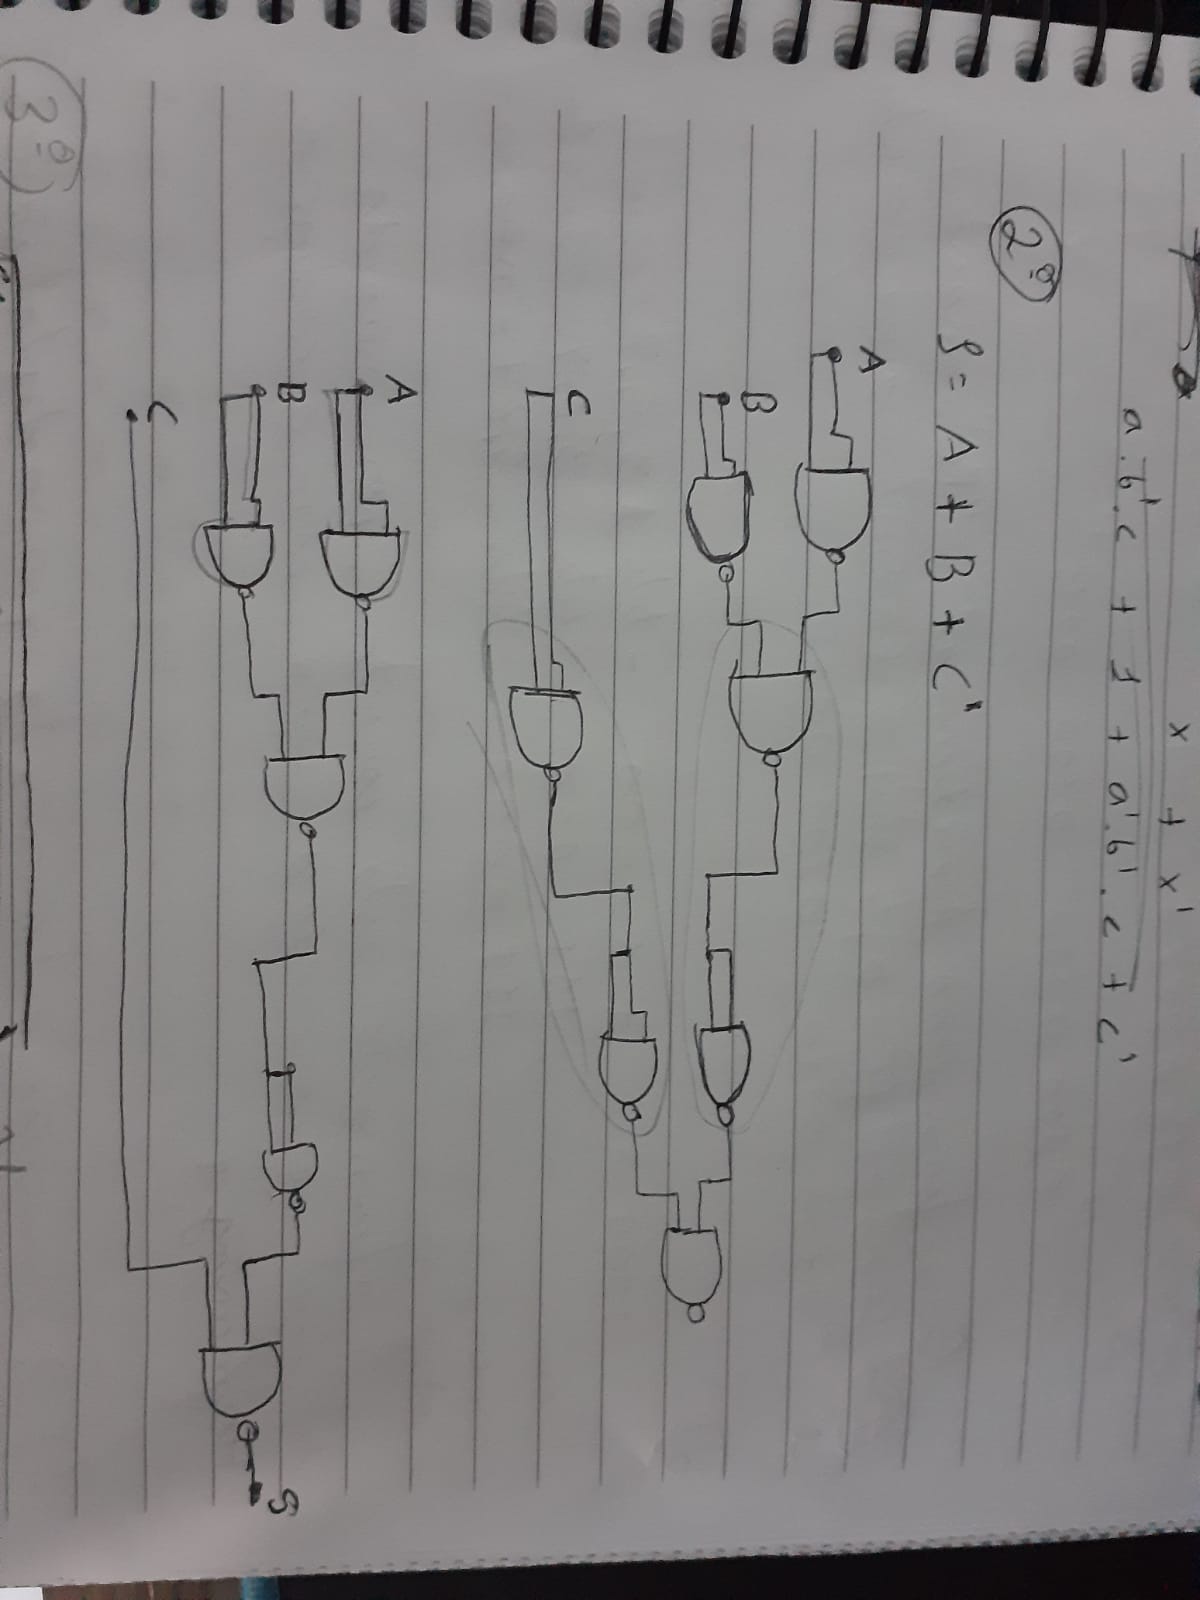 x + x'
a.b'.c + 1 + a'.b'.c + c'
2º
S = A + B + C'
A
B
C
A
B
C
S
3º